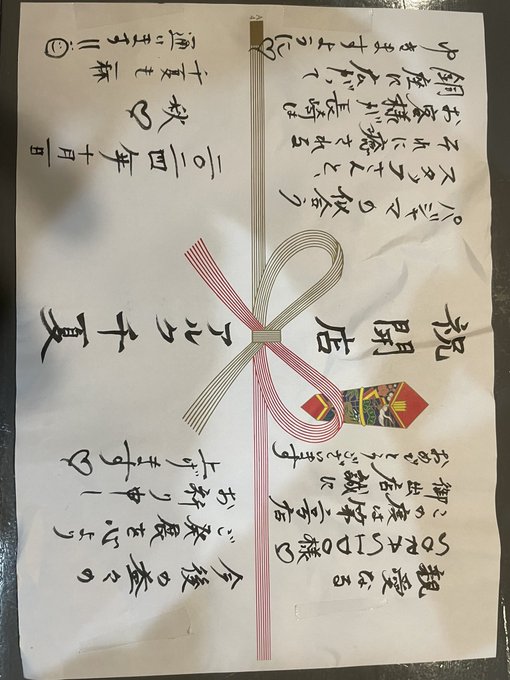 親愛なる
SORASIDO様♡
この度は第二号店
御出店誠に
おめでとうございます
今後の益々の
ご発展を心より
お祈り申し
上げます♡
祝開店
アルク千夏
パジャマの似合う
スタッフさんと、
それに癒される
お客様が長崎は
銅座に広がって
ゆきますように♡
二〇二四年十月一日
秋♡
千夏も一杯
通います!!